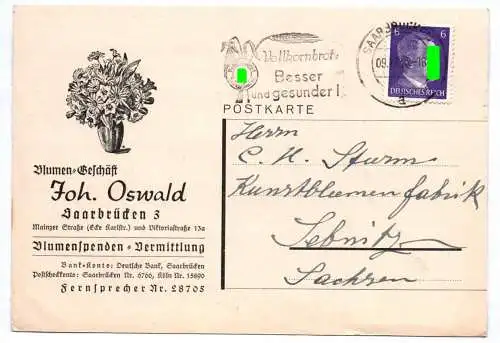 Blumen-Geschäft
Joh. Oswald
Saarbrücken 3
Mainzer Straße (Ecke Karlstr.) und Viktoriastraße 13a
Blumenspenden-Vermittlung
Bank-Konto: Deutsche Bank, Saarbrücken
Postscheckkonto: Saarbrücken Nr. 6766, Köln Nr. 15690
Fernsprecher Nr. 28705
Vollkornbrot:
Besser
und gesunder!
POSTKARTE
SAARBRÜCKEN
09.
a
6 6
DEUTSCHES REICH
Herrn
C. H. Sturm
Kunstblumenfabrik
Sebnitz
Sachsen